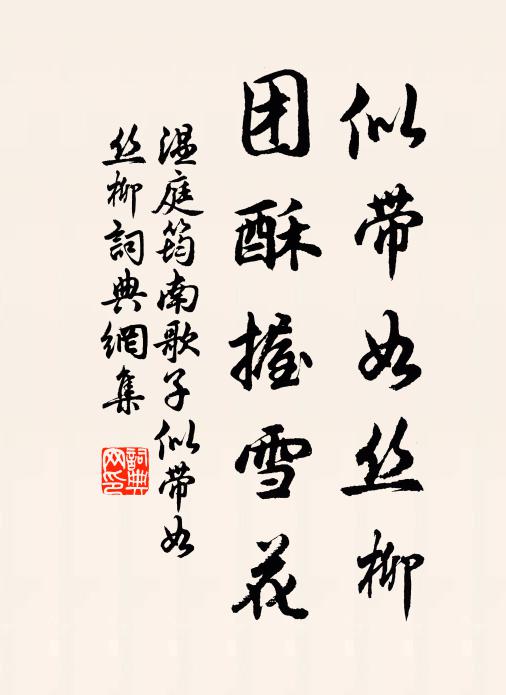 似带如丝柳
团酥握雪花
温庭筠南歌子似带如
丝柳詞典網集
詞典
网印